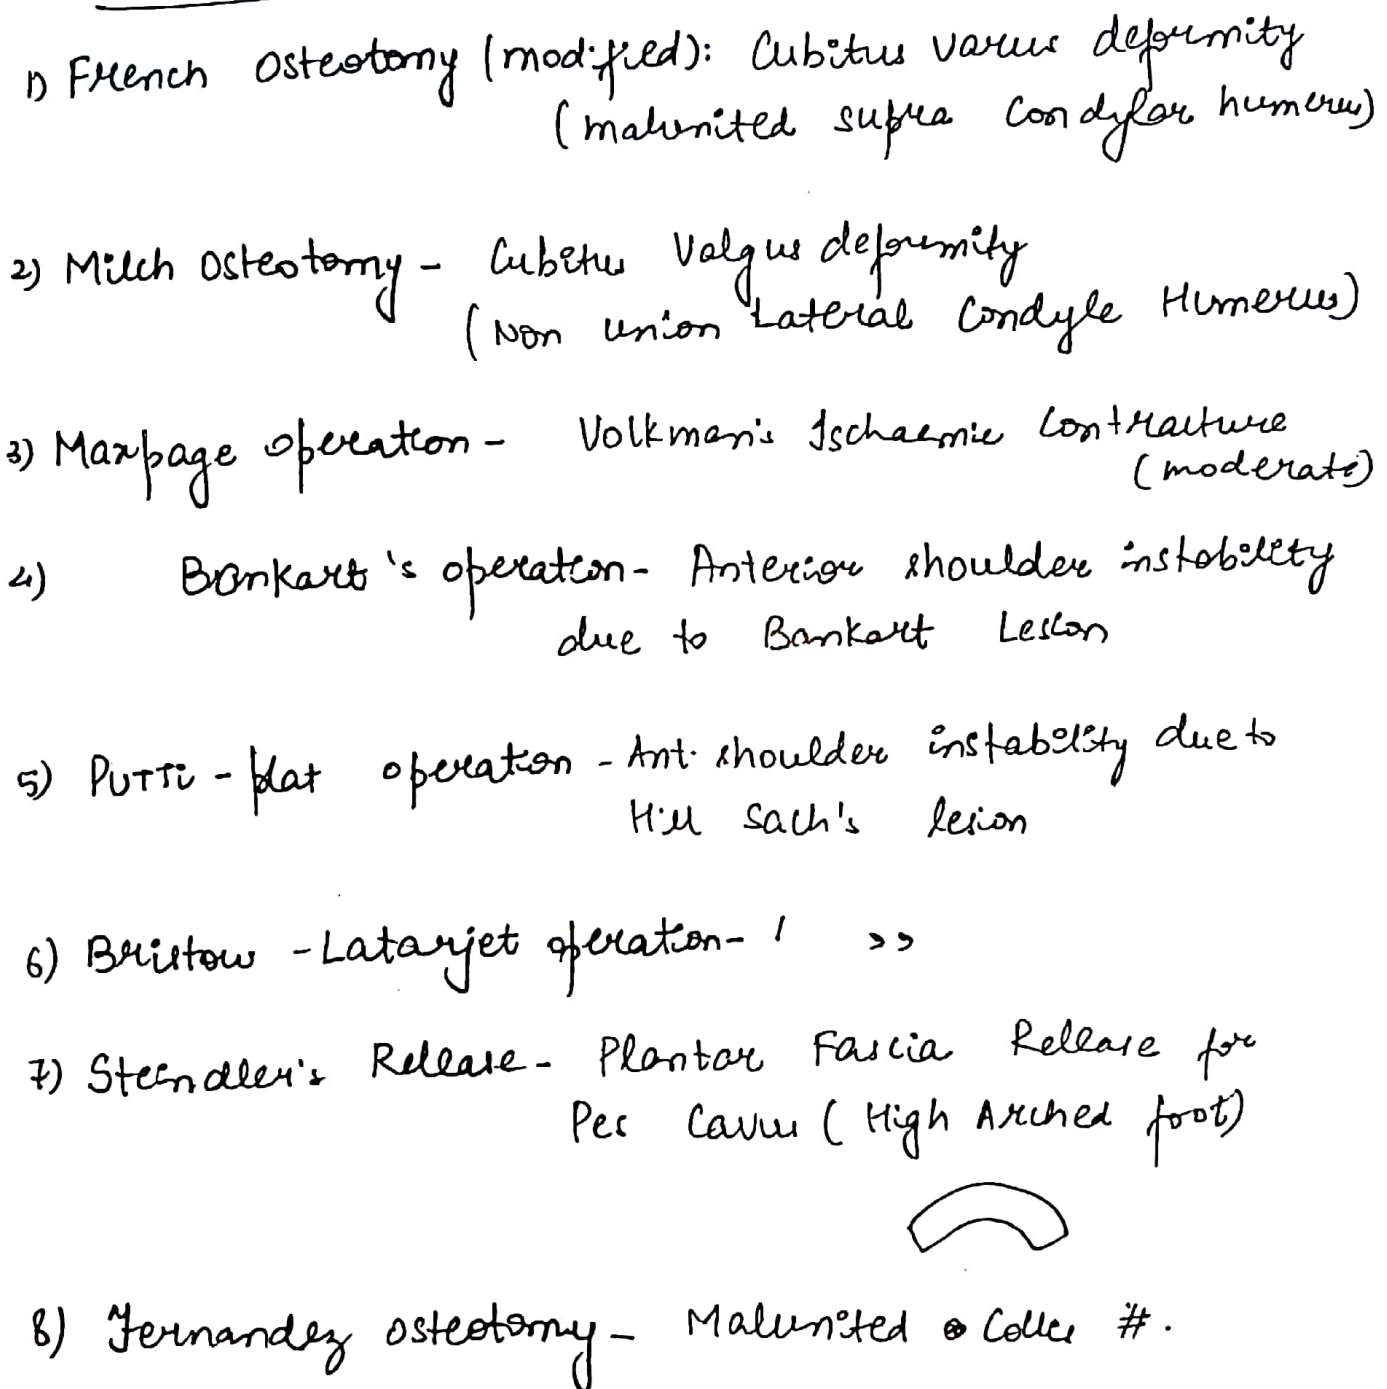 1) French Osteotomy (modified): Cubitus varus deformity
(malunited supra condylar humerus)
2) Milch Osteotomy - Cubitus Valgus deformity
(Non union Lateral Condyle Humerus)
3) Maxpage operation - Volkman's Ischaemic Contracture
(moderate)
4) Bankart's operation - Anterior shoulder instability
due to Bankart Lesion
5) Putti - plat operation - Ant. shoulder instability due to
Hill Sach's lesion
6) Bristow - Latarjet operation - ! >>
7) Steindler's Release - Plantar Fascia Release for
Pes Cavus (High Arched foot)
8) Fernandez osteotomy - Malunited Colles #.